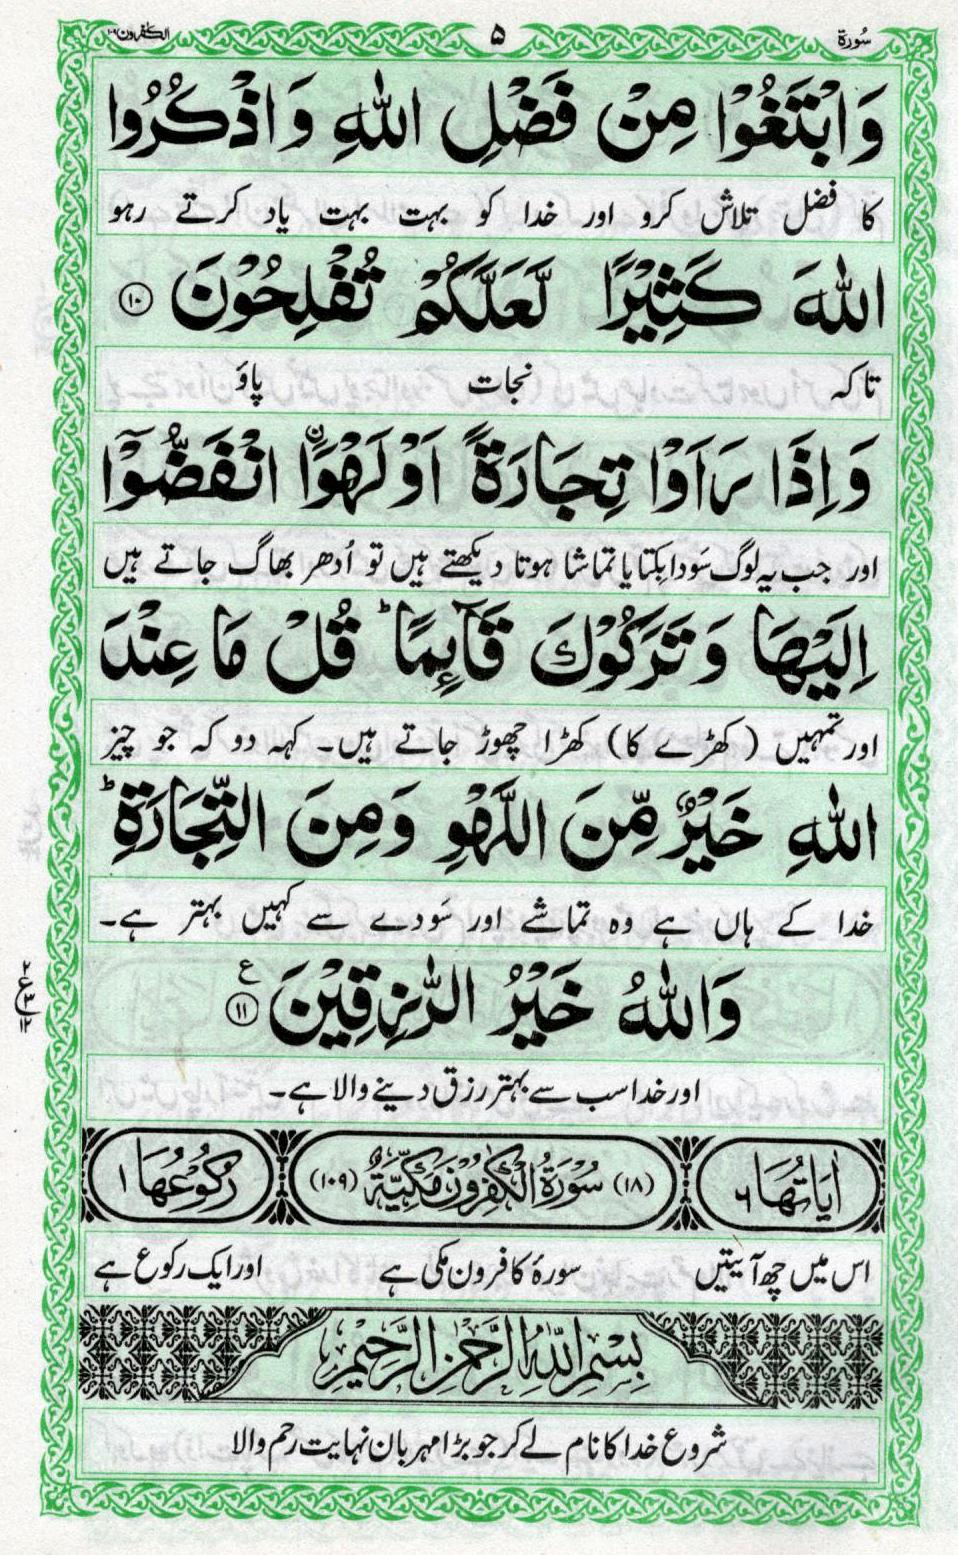 سُورة
۵
الكٰفرون ۱۰۹
وَابْتَغُوْا مِنْ فَضْلِ اللّٰهِ وَاذْكُرُوا
کا فضل تلاش کرو اور خدا کو بہت بہت یاد کرتے رہو
اللّٰهَ كَثِيْرًا لَّعَلَّكُمْ تُفْلِحُوْنَ ۱۰
تاکہ نجات پاؤ
وَاِذَا رَاَوْا تِجَارَةً اَوْ لَهْوَاۨ انْفَضُّوْۤا
اور جب یہ لوگ سَودا بکتا یا تماشا ہوتا دیکھتے ہیں تو اُدھر بھاگ جاتے ہیں
اِلَيْهَا وَتَرَكُوْكَ قَآىِٕمًا ؕ قُلْ مَا عِنْدَ
اور تمہیں (کھڑے کا) کھڑا چھوڑ جاتے ہیں۔ کہہ دو کہ جو چیز
اللّٰهِ خَيْرٌ مِّنَ اللَّهْوِ وَمِنَ التِّجَارَةِ ؕ
خدا کے ہاں ہے وہ تماشے اور سَودے سے کہیں بہتر ہے۔
وَاللّٰهُ خَيْرُ الرّٰزِقِيْنَ ۱۱ ع
اور خدا سب سے بہتر رزق دینے والا ہے۔
اٰيَاتُهَا ۶
(۱۸) سُوْرَةُ الْكٰفِرُوْنَ مَكِّيَّةٌ (۱۰۹)
رُكُوْعُهَا ۱
اس میں چھ آیتیں سورۂ کافرون مکی ہے اور ایک رکوع ہے
بِسْمِ اللّٰهِ الرَّحْمٰنِ الرَّحِيْمِ
شروع خدا کا نام لے کر جو بڑا مہربان نہایت رحم والا